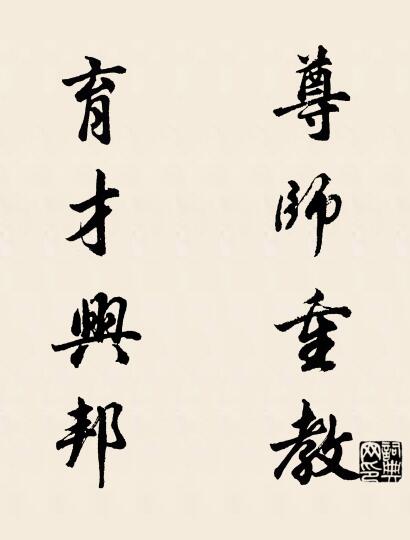 尊師重教
育才興邦
詞典網印